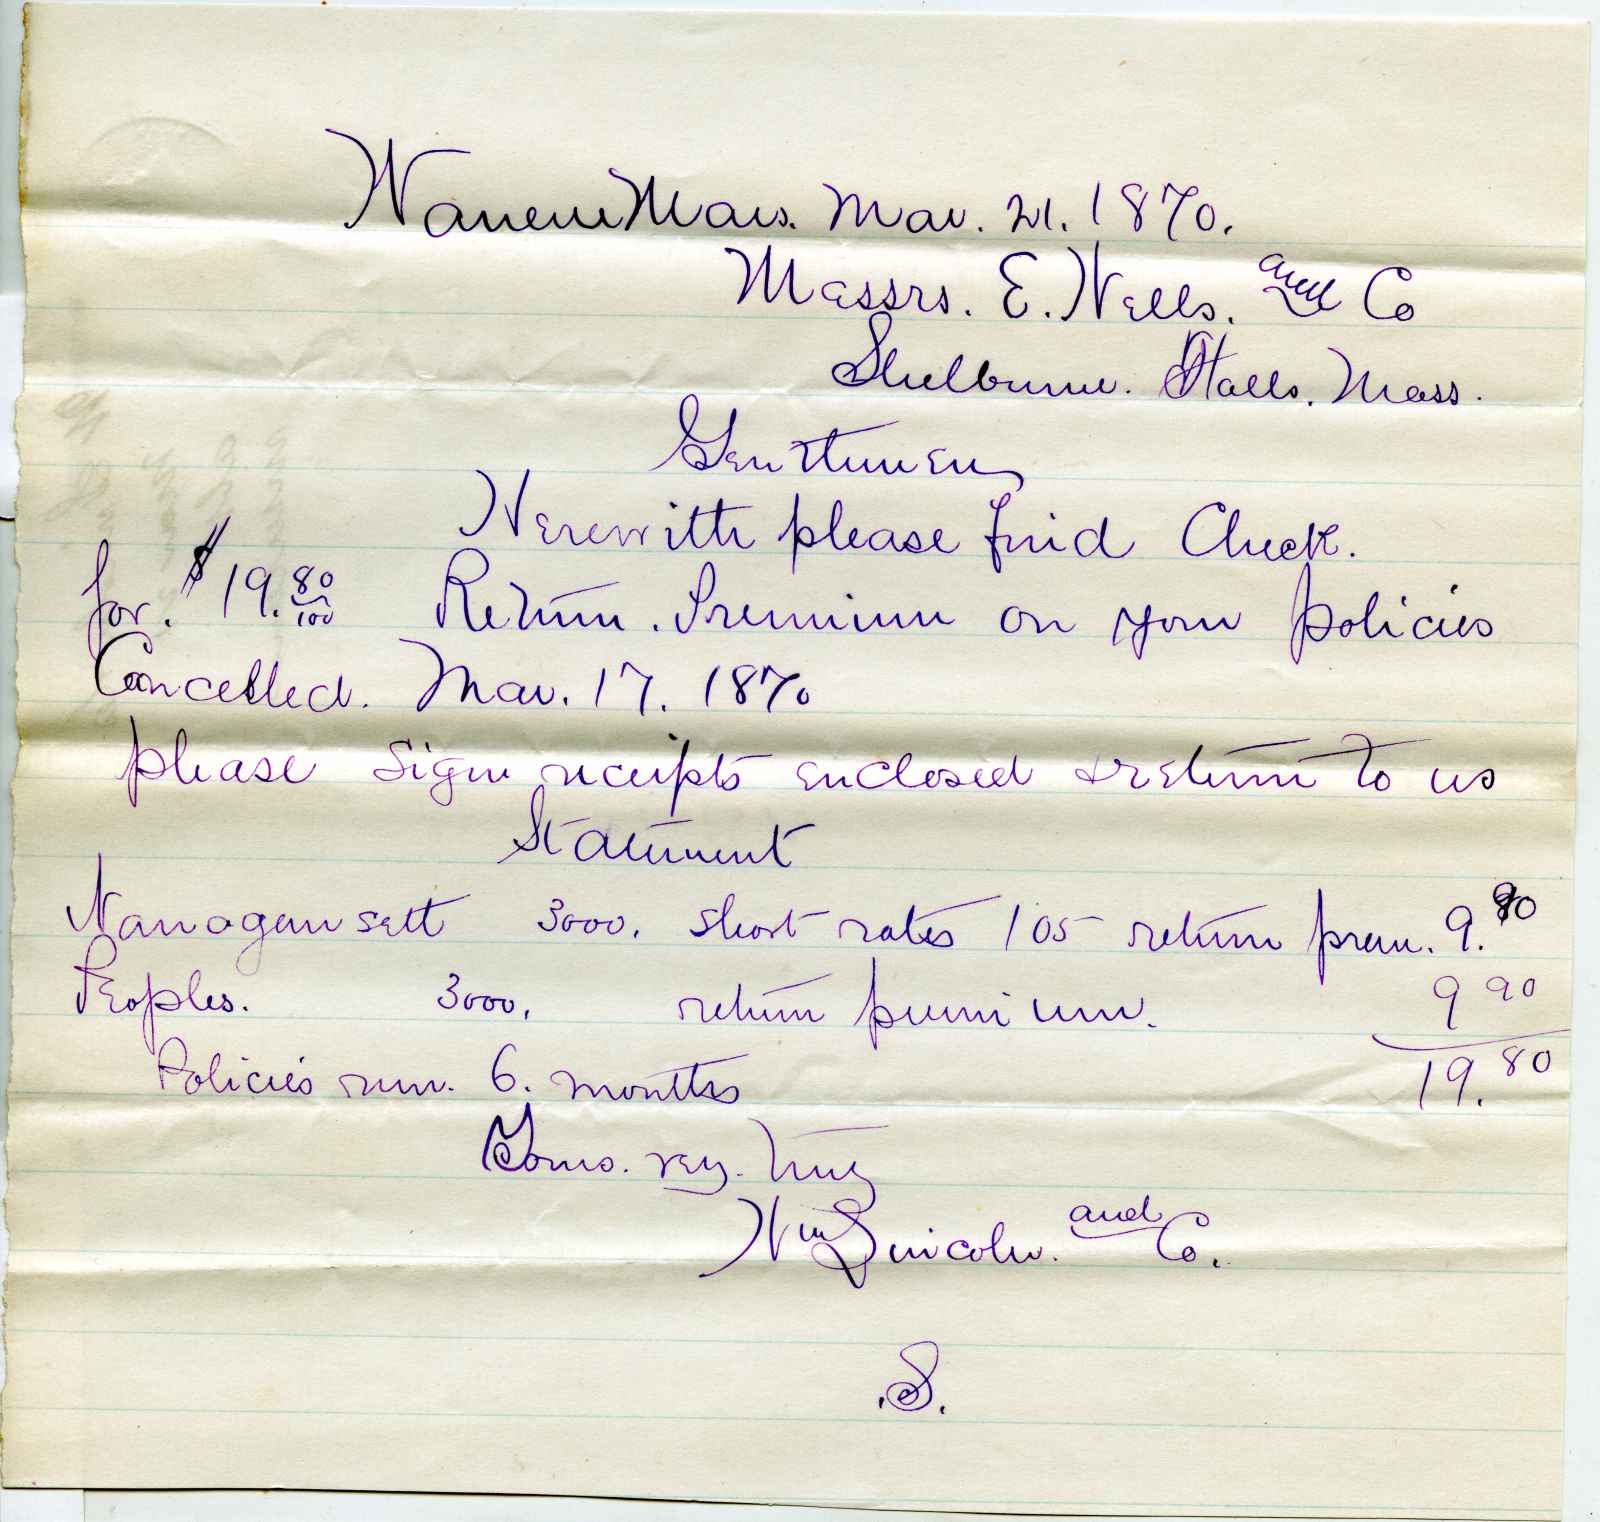 Warren Mass. Mar. 21. 1870.
Messrs. E. Wells. and Co
Shelburne. Falls. Mass.
Gentlemen
Herewith please find Check.
for. $19. 80/100 Return. Premium on your policies
Cancelled. Mar. 17. 1870
please sign receipts enclosed & return to us
Statement
Narragansett 3000. short rates 105 return prem. 9.90
Peoples. 3000. return premium. 9 90
Policies run. 6. months 19.80
Yours. rey. truly
Wm Lincoln. and Co.
.S.